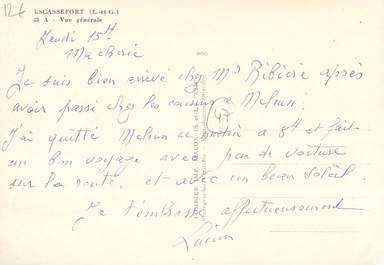 12 f
ESCASSEFORT (L.-et-G.)
22 A - Vue générale
Jeudi 15 H
Ma Chérie
Je suis bien arrivé chez Mr Ribière après
avoir passé chez les cousins à Mehun.
47
J'ai quitté Mehun ce matin à 8H et fait
un bon voyage avec peu de voiture
sur la route, et avec un beau soleil.
Je t'embrasse affectueusement
Lucien
COMBIER IMP. MACON